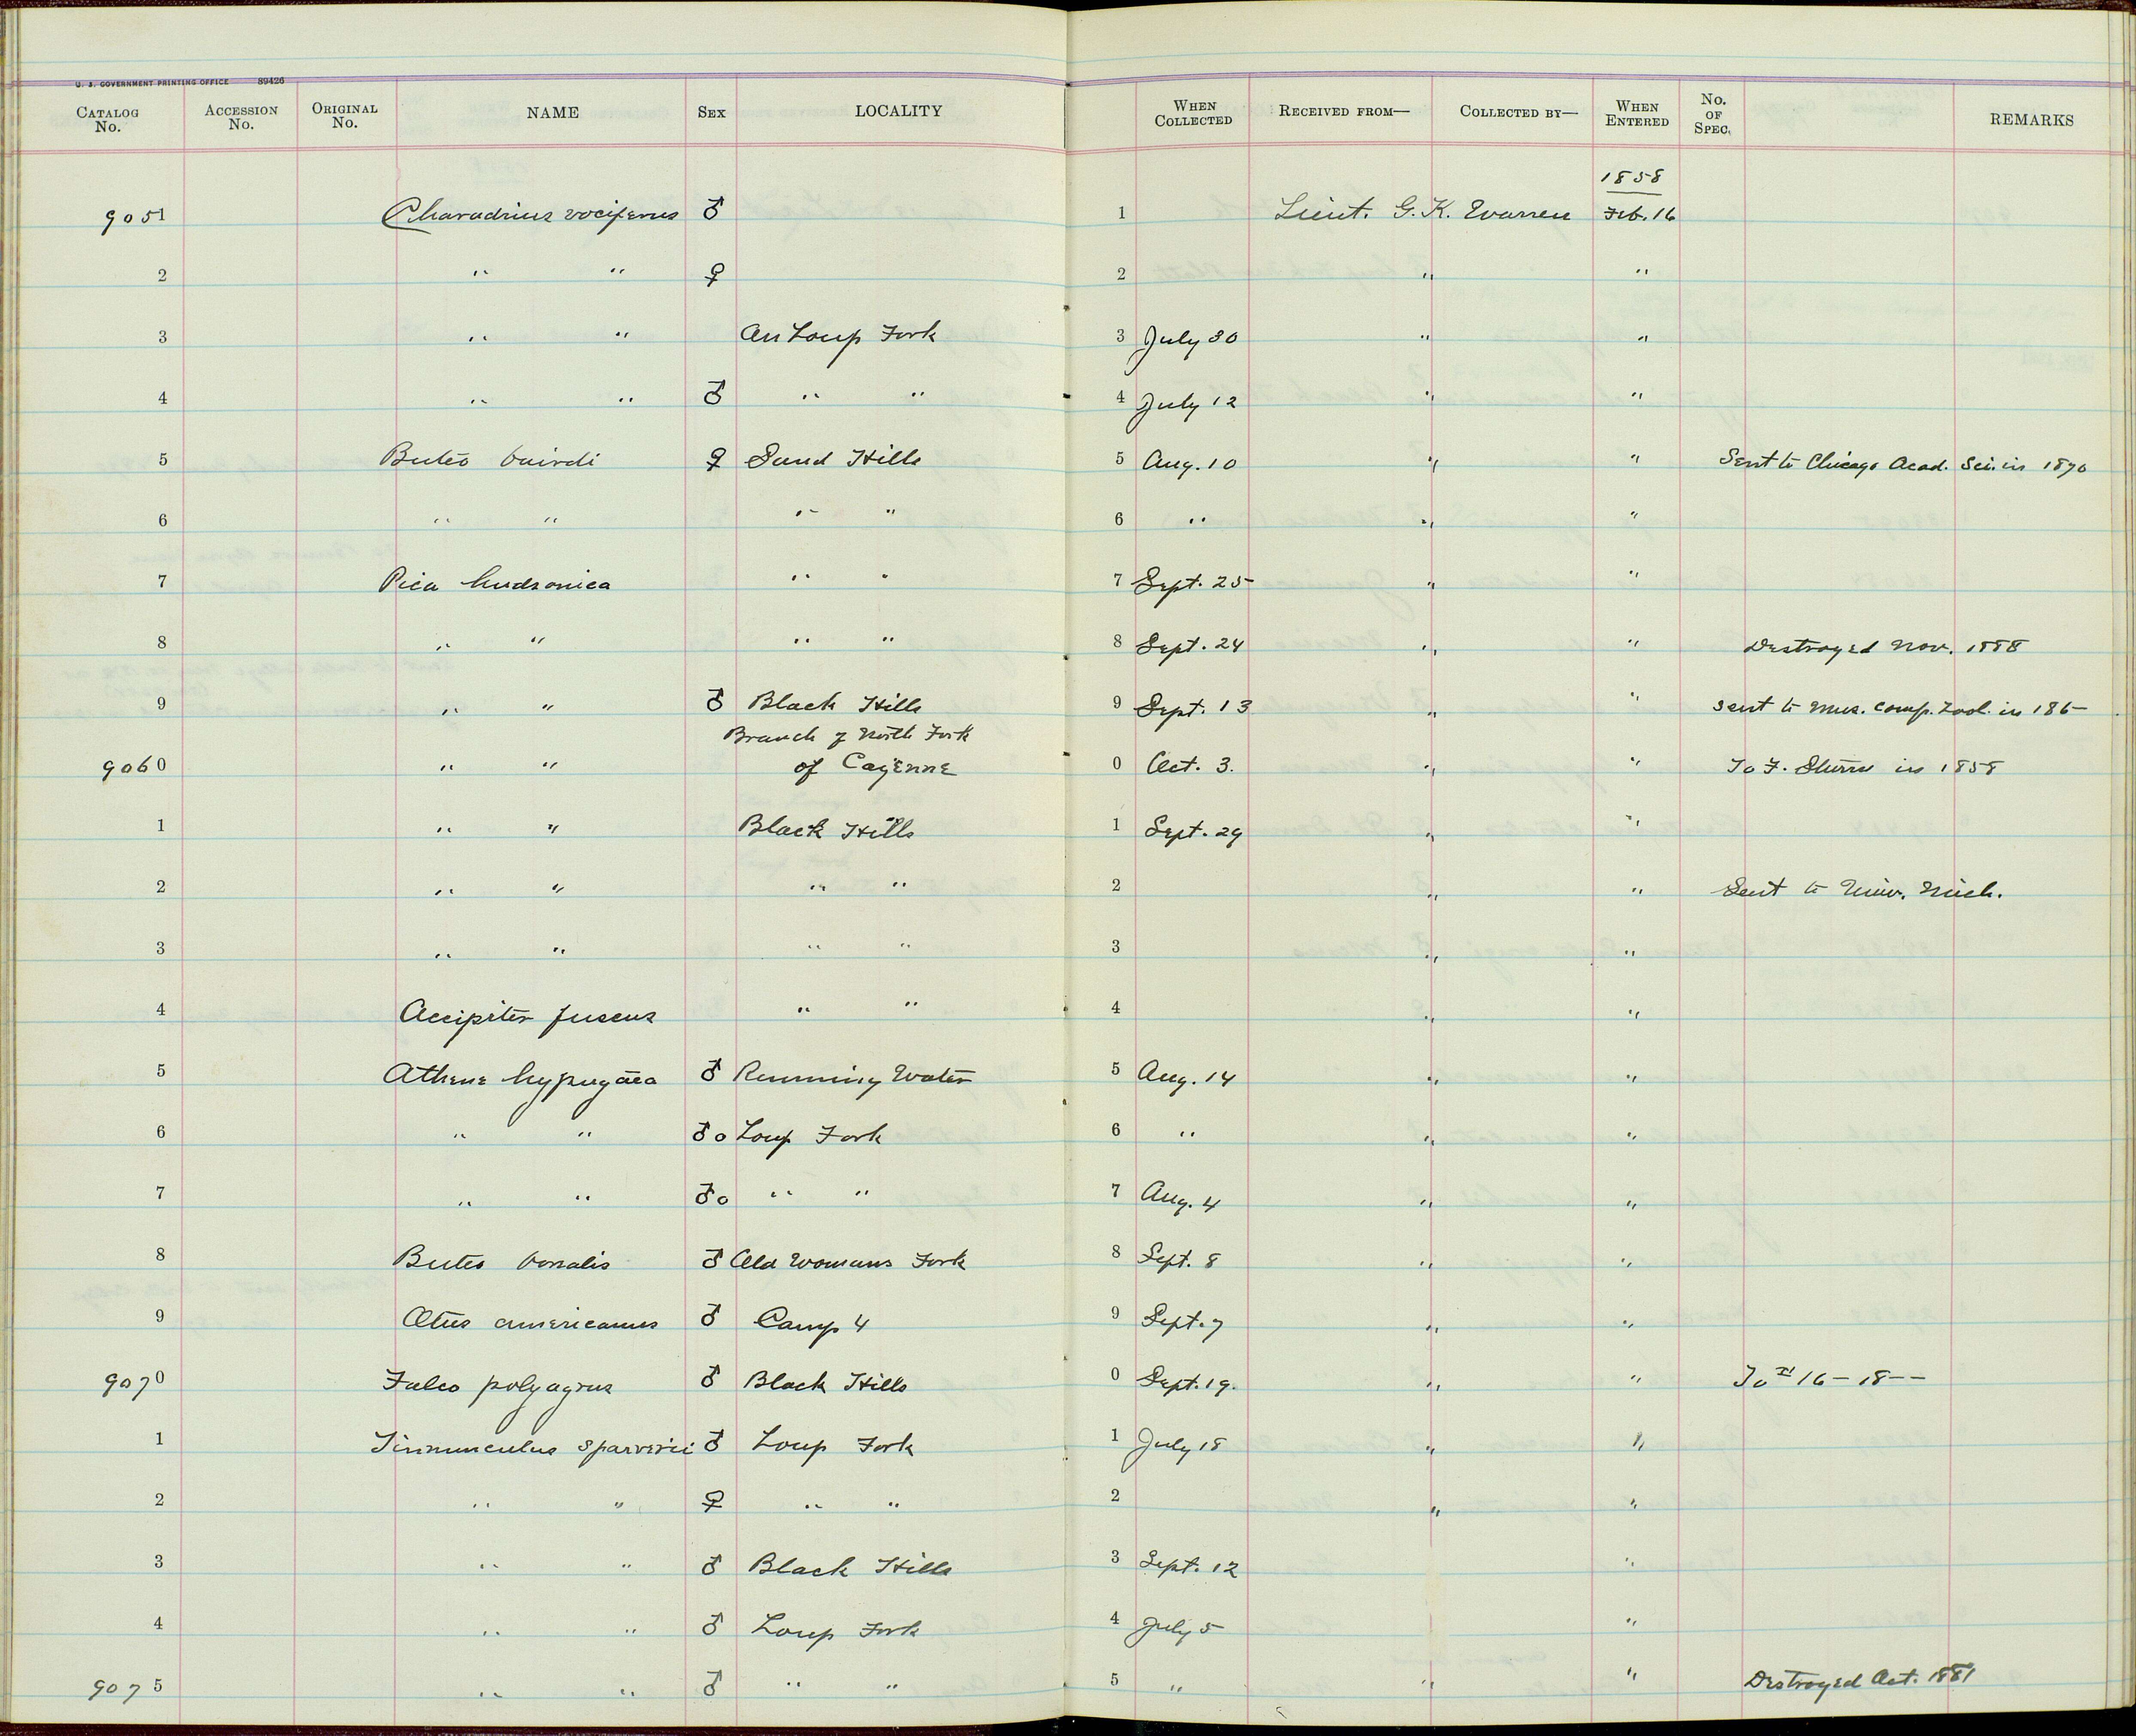 U. S. GOVERNMENT PRINTING OFFICE 89426
CATALOG No. ACCESSION No. ORIGINAL No. NAME SEX LOCALITY WHEN COLLECTED RECEIVED FROM— COLLECTED BY— WHEN ENTERED No. OF SPEC. REMARKS
1858
9051 Charadrius vociferus ♂ 1 Lieut. G. K. Warren Feb. 16
2 " " ♀ 2 " "
3 " " On Loup Fork 3 July 30 " "
4 " " ♂ " " 4 July 12 " "
5 Buteo bairdi ♀ Sand Hills 5 Aug. 10 " " Sent to Chicago Acad. Sci. in 1870
6 " " " " 6 " " "
7 Pica hudsonica " " 7 Sept. 25 " "
8 " " " " 8 Sept. 24 " " Destroyed Nov. 1888
9 " " ♂ Black Hills 9 Sept. 13 " " Sent to Mus. Comp. Zool. in 186-
Branch of North Fork
9060 " " of Cayenne 0 Oct. 3. " " To F. in 1858
1 " " Black Hills 1 Sept. 29 " "
2 " " " " 2 " " Sent to Univ. Mich.
3 " " " " 3 " "
4 Accipiter fuscus " " 4 " "
5 Athene hypugaea ♂ Running Water 5 Aug. 14 " "
6 " " ♂o Loup Fork 6 " " "
7 " " ♂o " " 7 Aug. 4 " "
8 Buteo borealis ♂ Old Womans Fork 8 Sept. 8 " "
9 Otus americanus ♂ Camp 4 9 Sept. 7 " "
9070 Falco polyagrus ♂ Black Hills 0 Sept. 19. " " 16 - 18--
1 Tinnunculus sparverii ♂ Loup Fork 1 July 18 " "
2 " " ♀ " " 2 " "
3 " " ♂ Black Hills 3 Sept. 12 "
4 " " ♂ Loup Fork 4 July 5 "
9075 " " ♂ " " 5 " " " Destroyed Oct. 1881